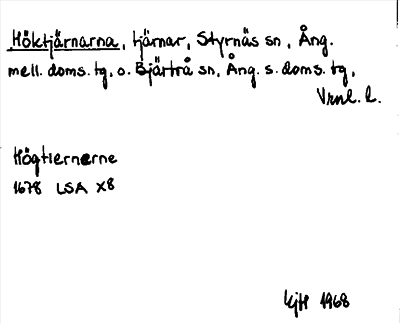 Höktjärnarna, tjärnar, Styrnäs sn, Ång.
mell. doms. tg, o. Bjärtrå sn, Ång. s. doms. tg,
Vrnl. l.
Högtiernerne
1678 LSA X8
KjH 1968